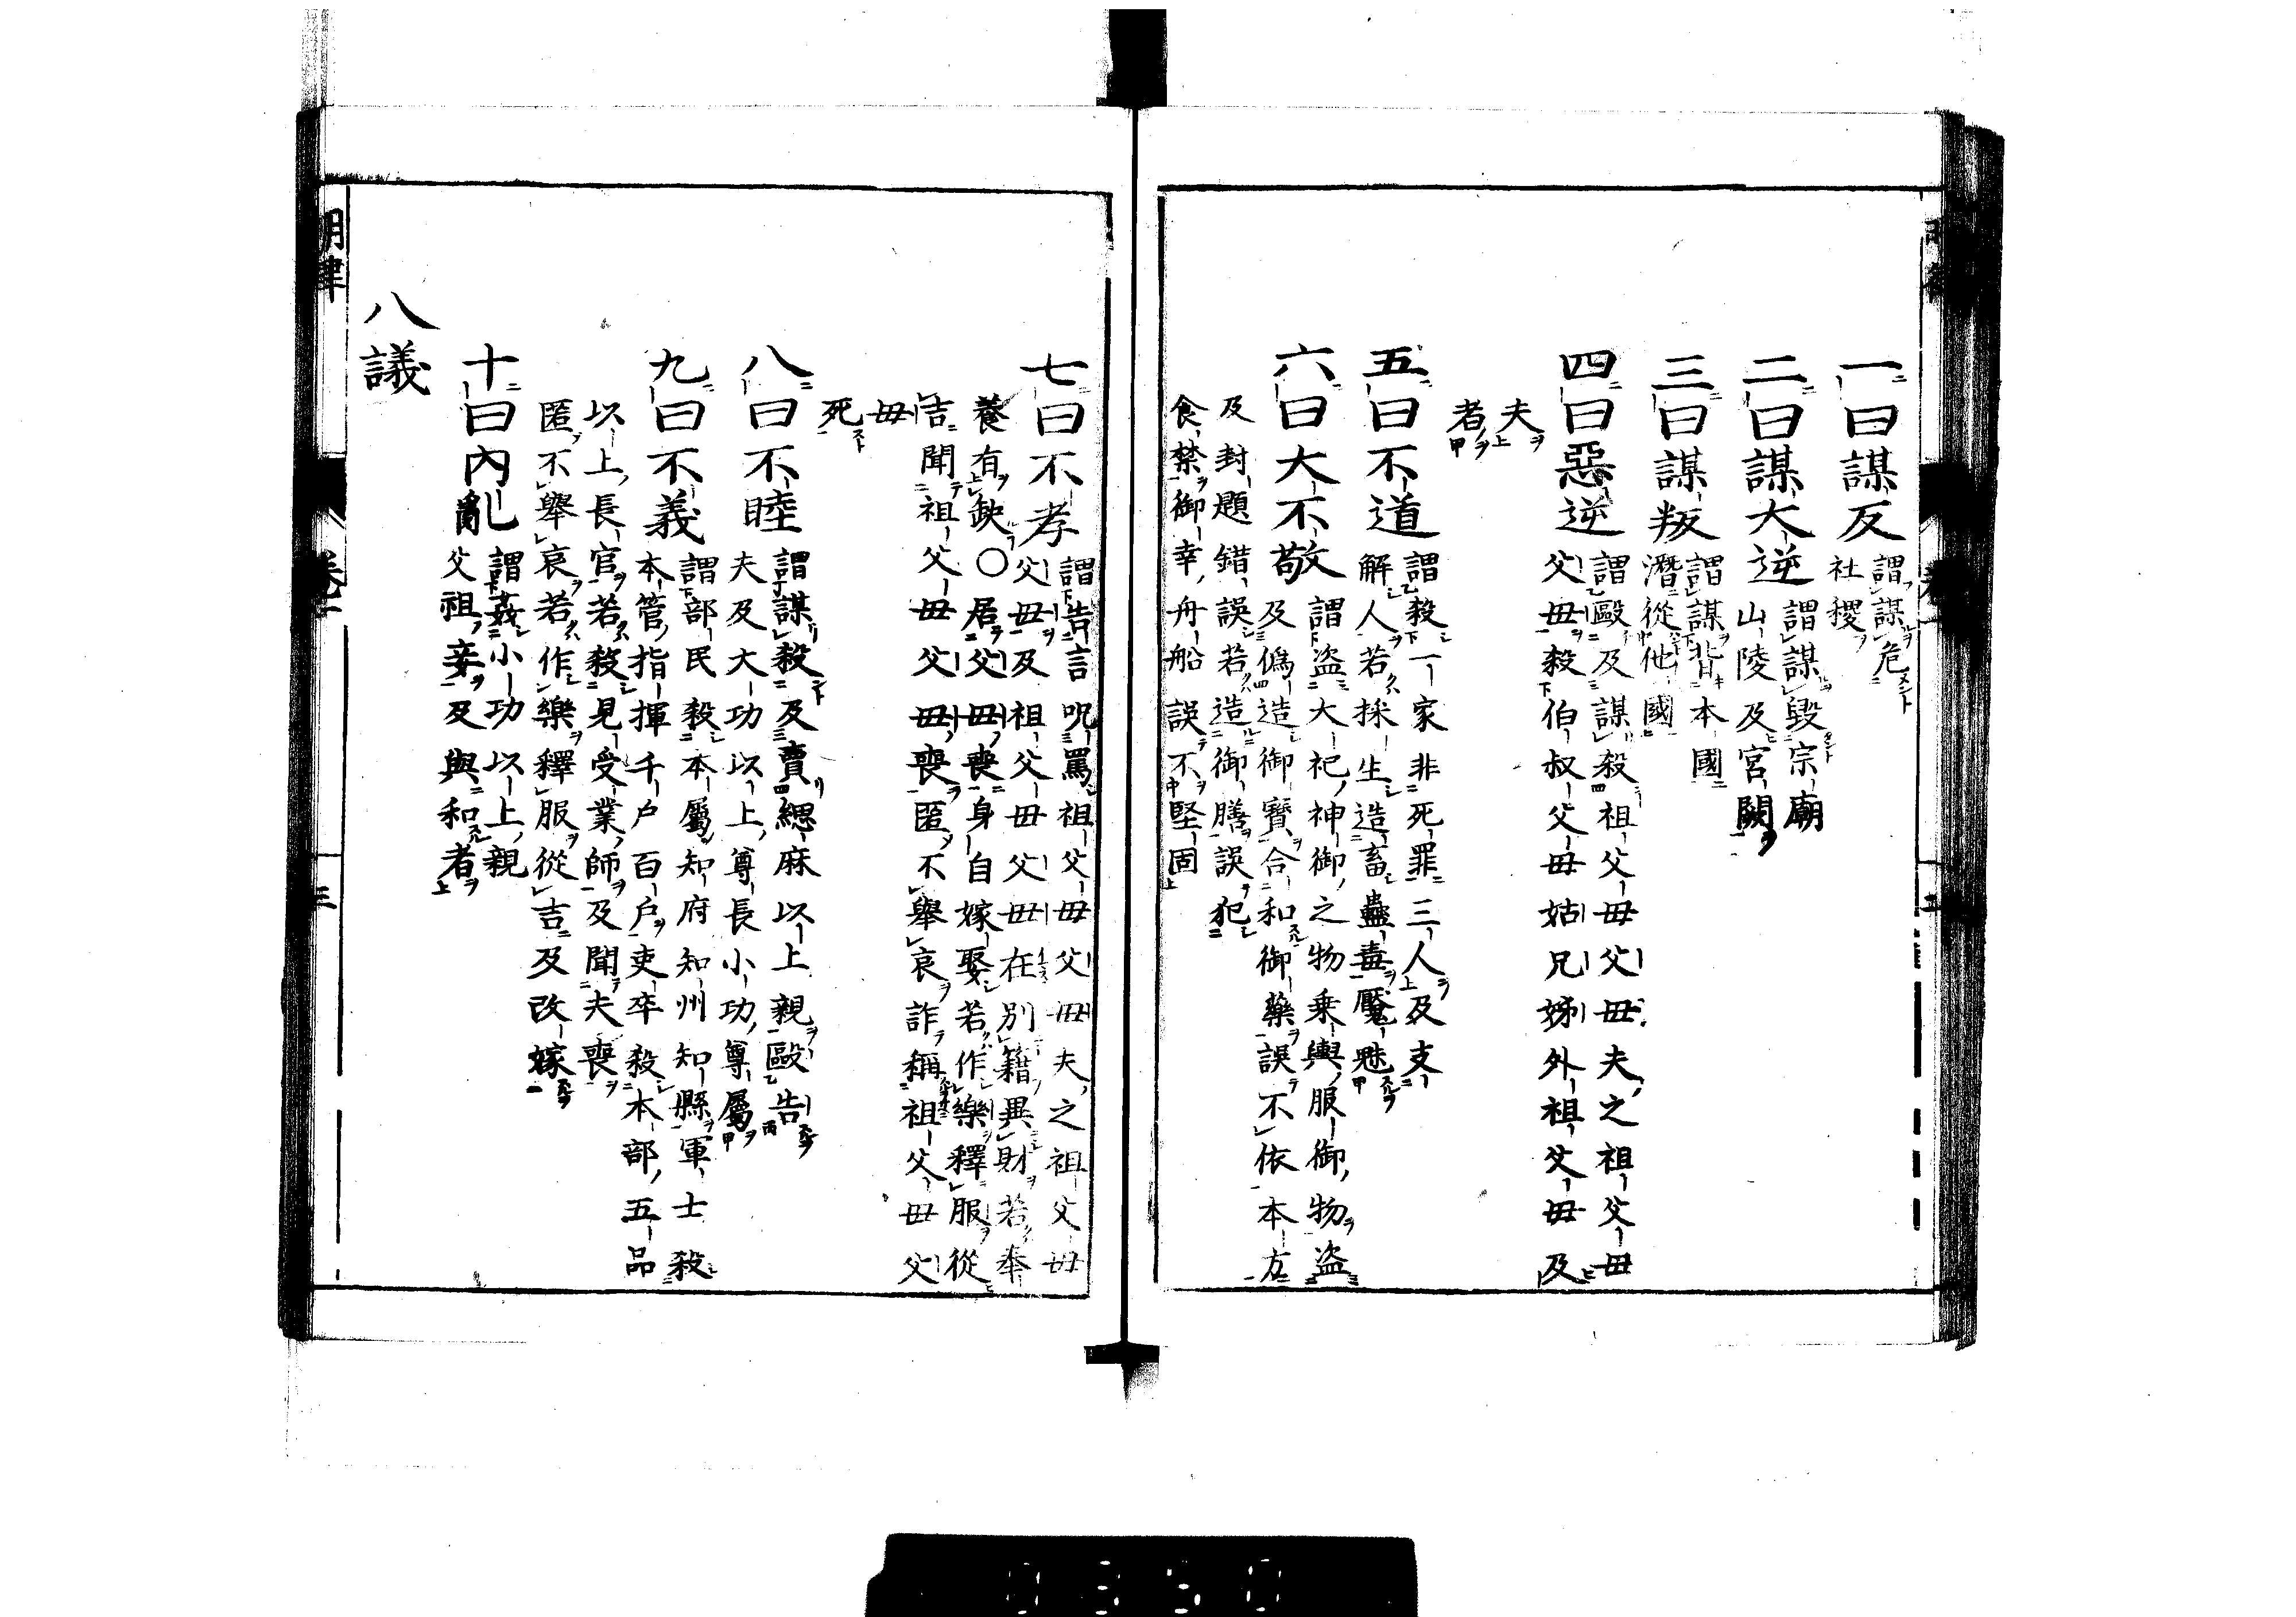 一曰謀反
謂謀危
社稷
二曰謀大逆
謂謀毀宗廟
山陵及宮闕
三曰謀叛
謂謀背本國
潛從他國
四曰惡逆
謂毆及謀殺祖父母父母夫之祖父母
父母殺伯叔父母姑兄姊外祖父母及
夫
者
五曰不道
謂殺一家非死罪三人及支
解人若採生造畜蠱毒魘魅
六曰大不敬
謂盜大祀神御之物乗輿服御物盜
及僞造御寶合和御藥誤不依本方
及封題錯誤若造御膳誤犯
食禁御幸舟船誤不堅固
七曰不孝
謂告言呪罵祖父母父母夫之祖父母
父母及祖父母父母在別籍異財若奉
養有缺〇居父母喪身自嫁娶若作樂釋服從
吉聞祖父母父母喪匿不舉哀詐稱祖父母父
母
死
八曰不睦
謂謀殺及賣緦麻以上親毆告
夫及大功以上尊長小功尊屬
九曰不義
謂部民殺本屬知府知州知縣軍士殺
本管指揮千户百户吏卒殺本部五品
以上長官若殺見受業師及聞夫喪
匿不舉哀若作樂釋服從吉及改嫁
十曰內亂
謂姦小功以上親
父祖妾及與和者
八議
明律
卷一
三
0350